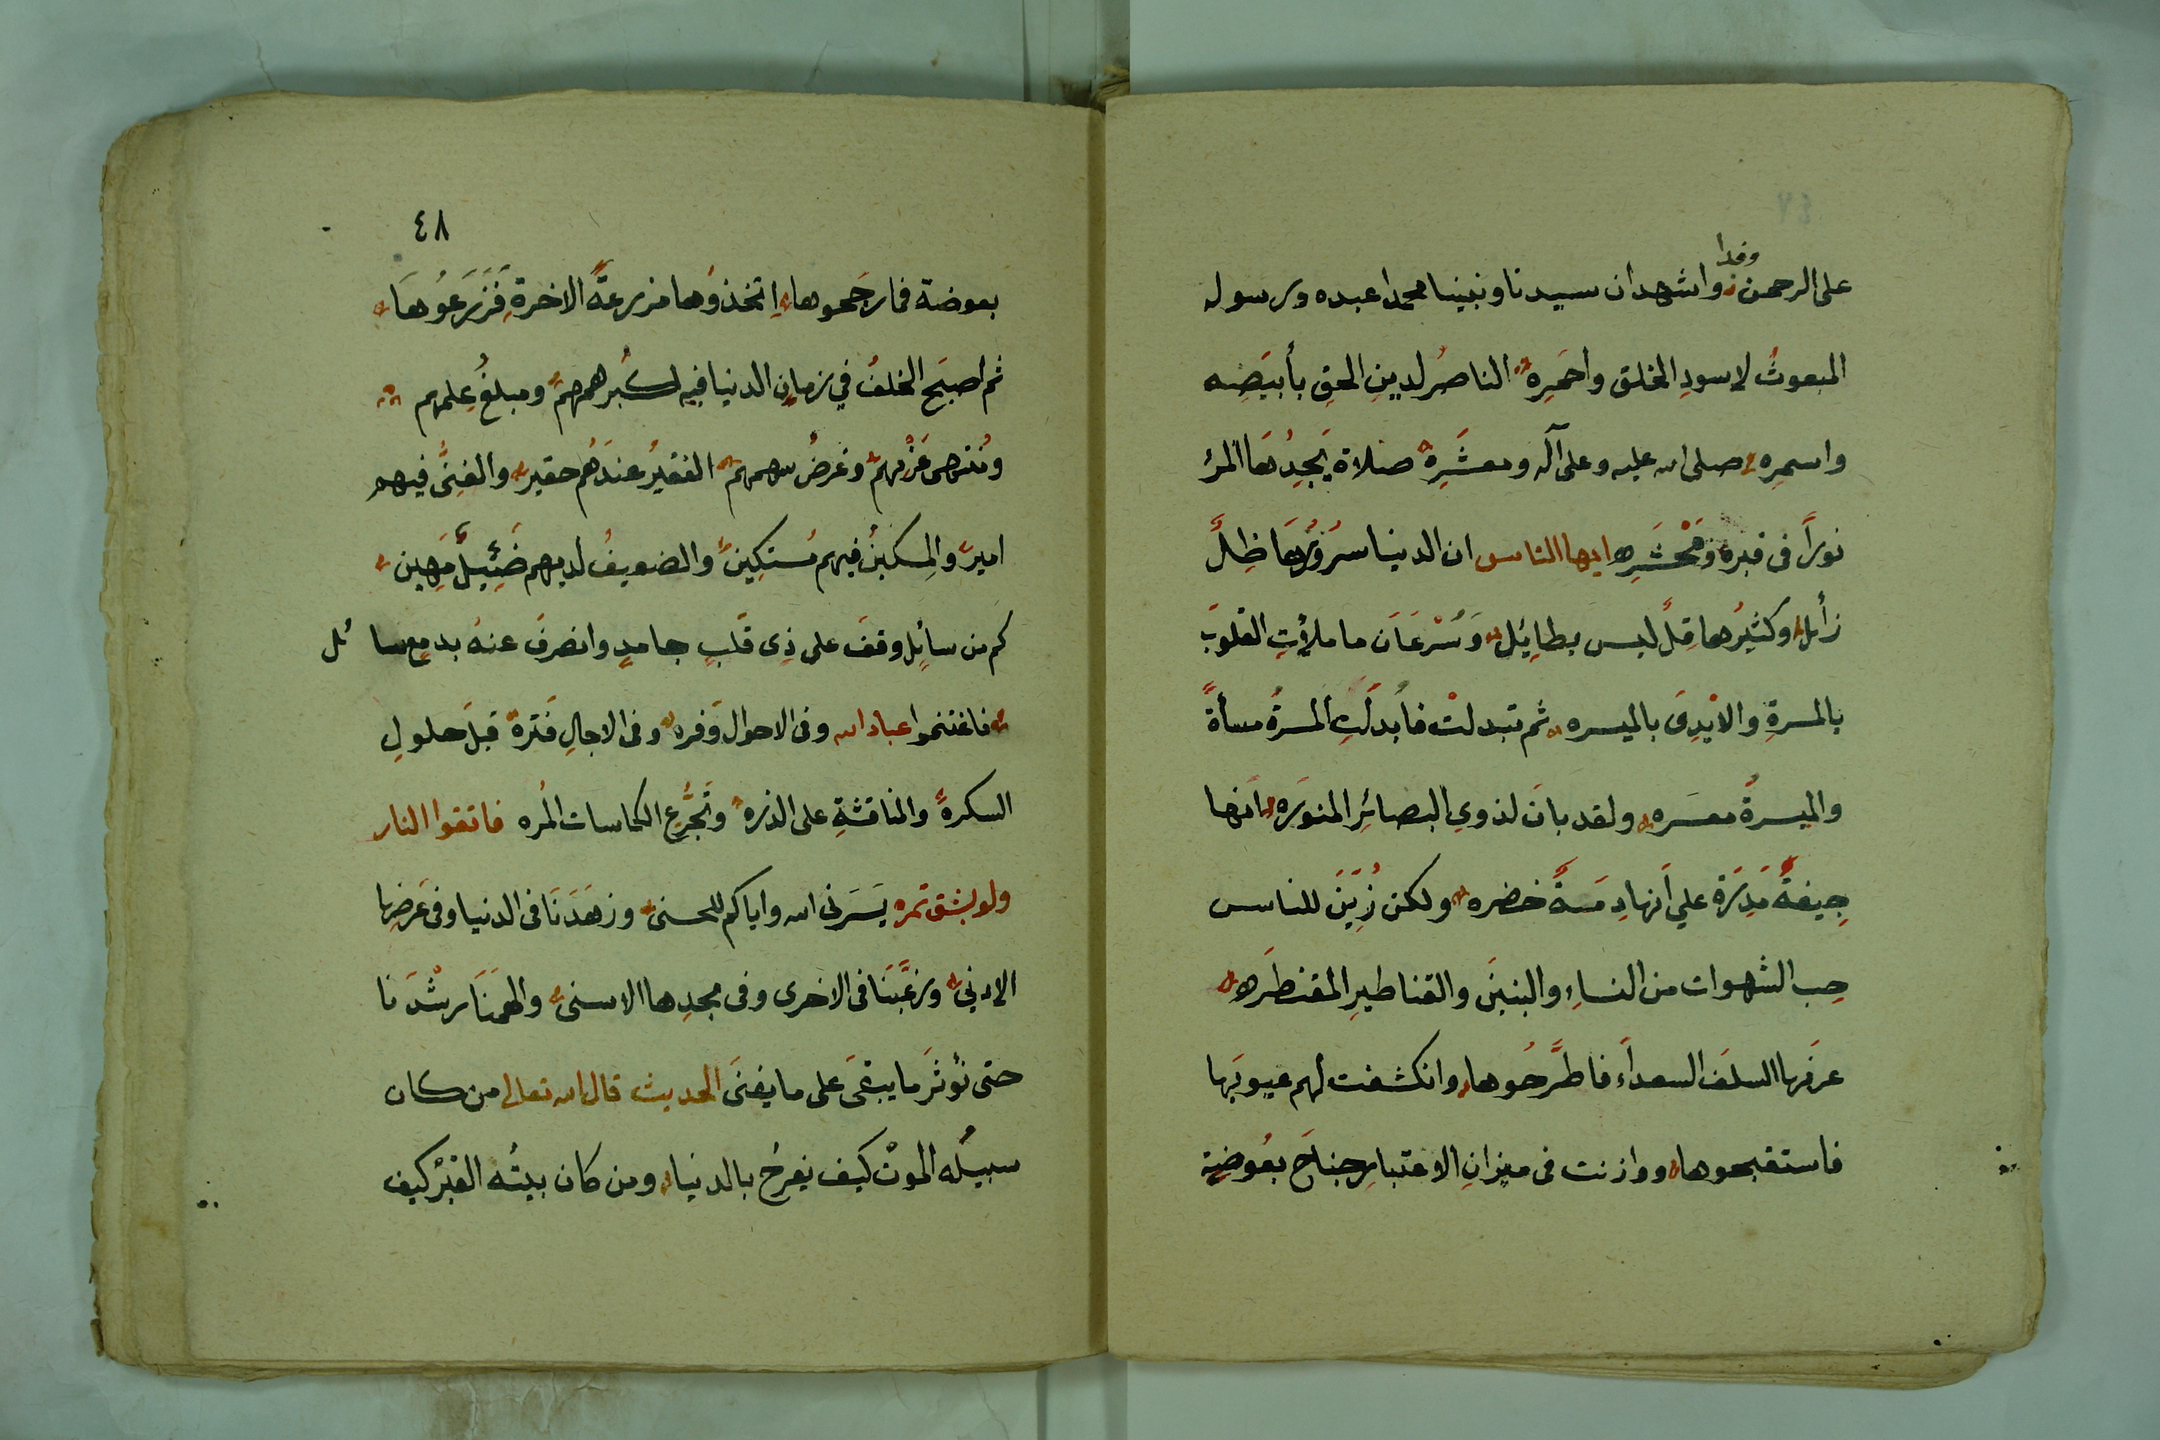 وفدا
على الرحمن واشهد ان سيدنا ونبينا محمدا عبده ورسوله
المبعوثُ لاِسودِ الخلق وأحمَرِه الناصرُ لدينِ الحقِ بأبيَضِه
واسمرِه صلى الله عليه وعلى آله ومعشَرِه صلاة يَجِدُهَا المرُ
نوراً فى قبرِه ومَحْشَرِه ايها الناس ان الدنيا سرُورُهَا ظِلٌّ
زأيل وكثيرُها قِلٌّ ليس بطايئل وَسُرْعَانَ ما ملأتِ القلوبَ
بالمسرةِ والايْدِىَ بالميسره ثم تبدلتْ فأبدلَتِ المسرةُ مسأةً
والميسرةُ معسَره ولقد بانَ لذوي البصائِرِ المنورَه انها
جِيفةٌ مَذِرَة علي أنها دِمَنةٌ خضره ولكن زُيِّنَ للناس
حب الشهوات من النساءِ والبنينَ والقناطيرِ المقنطَره
عرَفها السلَف السعداَء فاطَّرَحُوها وانكشفت لهم عيوبَها
فاستقبحوها ووازنت فى ميزانِ الاعتبارِ جناحَ بعُوضة
٤٨
بعوضة فما رجَحوها اِتخذوُها مزرعةً الاخرةِ فَزَرَعُوهَا
ثم اصبَح الخلفُ في زمانِ الدنيا فيه اكبُر هممهم ومبلغُ عِلمهم
ومُنتهى عَزْمهم وغرضُ سهمهم الفقيرُ عندَهُم حقير والغنىُّ فيهم
امير والمِسكينُ فيهم مُستكِين والضعيفُ لديهم ضَئِيلٌ مَهِين
كَم من سائِل وقفَ على ذِى قَلبٍ جامدٍ وانصرفَ عنهُ بدمعٍ سائل
فاغتنموا عباد الله وفى الاحوال وَفره وفى الاجالِ فَترةٌ قبلَ حلولِ
السكرة والمناقشةِ على الذره وتَجرُّعِ الكاسات المُره فاتقوا النار
ولو بشق تمره يَسَرَنى الله واياكم للحسنى وزهَدَنَا فى الدنيا وفى عَرَضِها
الادني ورغَّبَنَا فى الاخرى وفى مجدِها الاسنى والهمَنَا رشْدَنا
حتى نُؤثَر ما يبقىَ على ما يفنىَ الحديث قال الله تعالى من كان
سبيلُه الموتْ كيف يفرحُ بالدنيا ومن كان بيتُه القبْر كيف